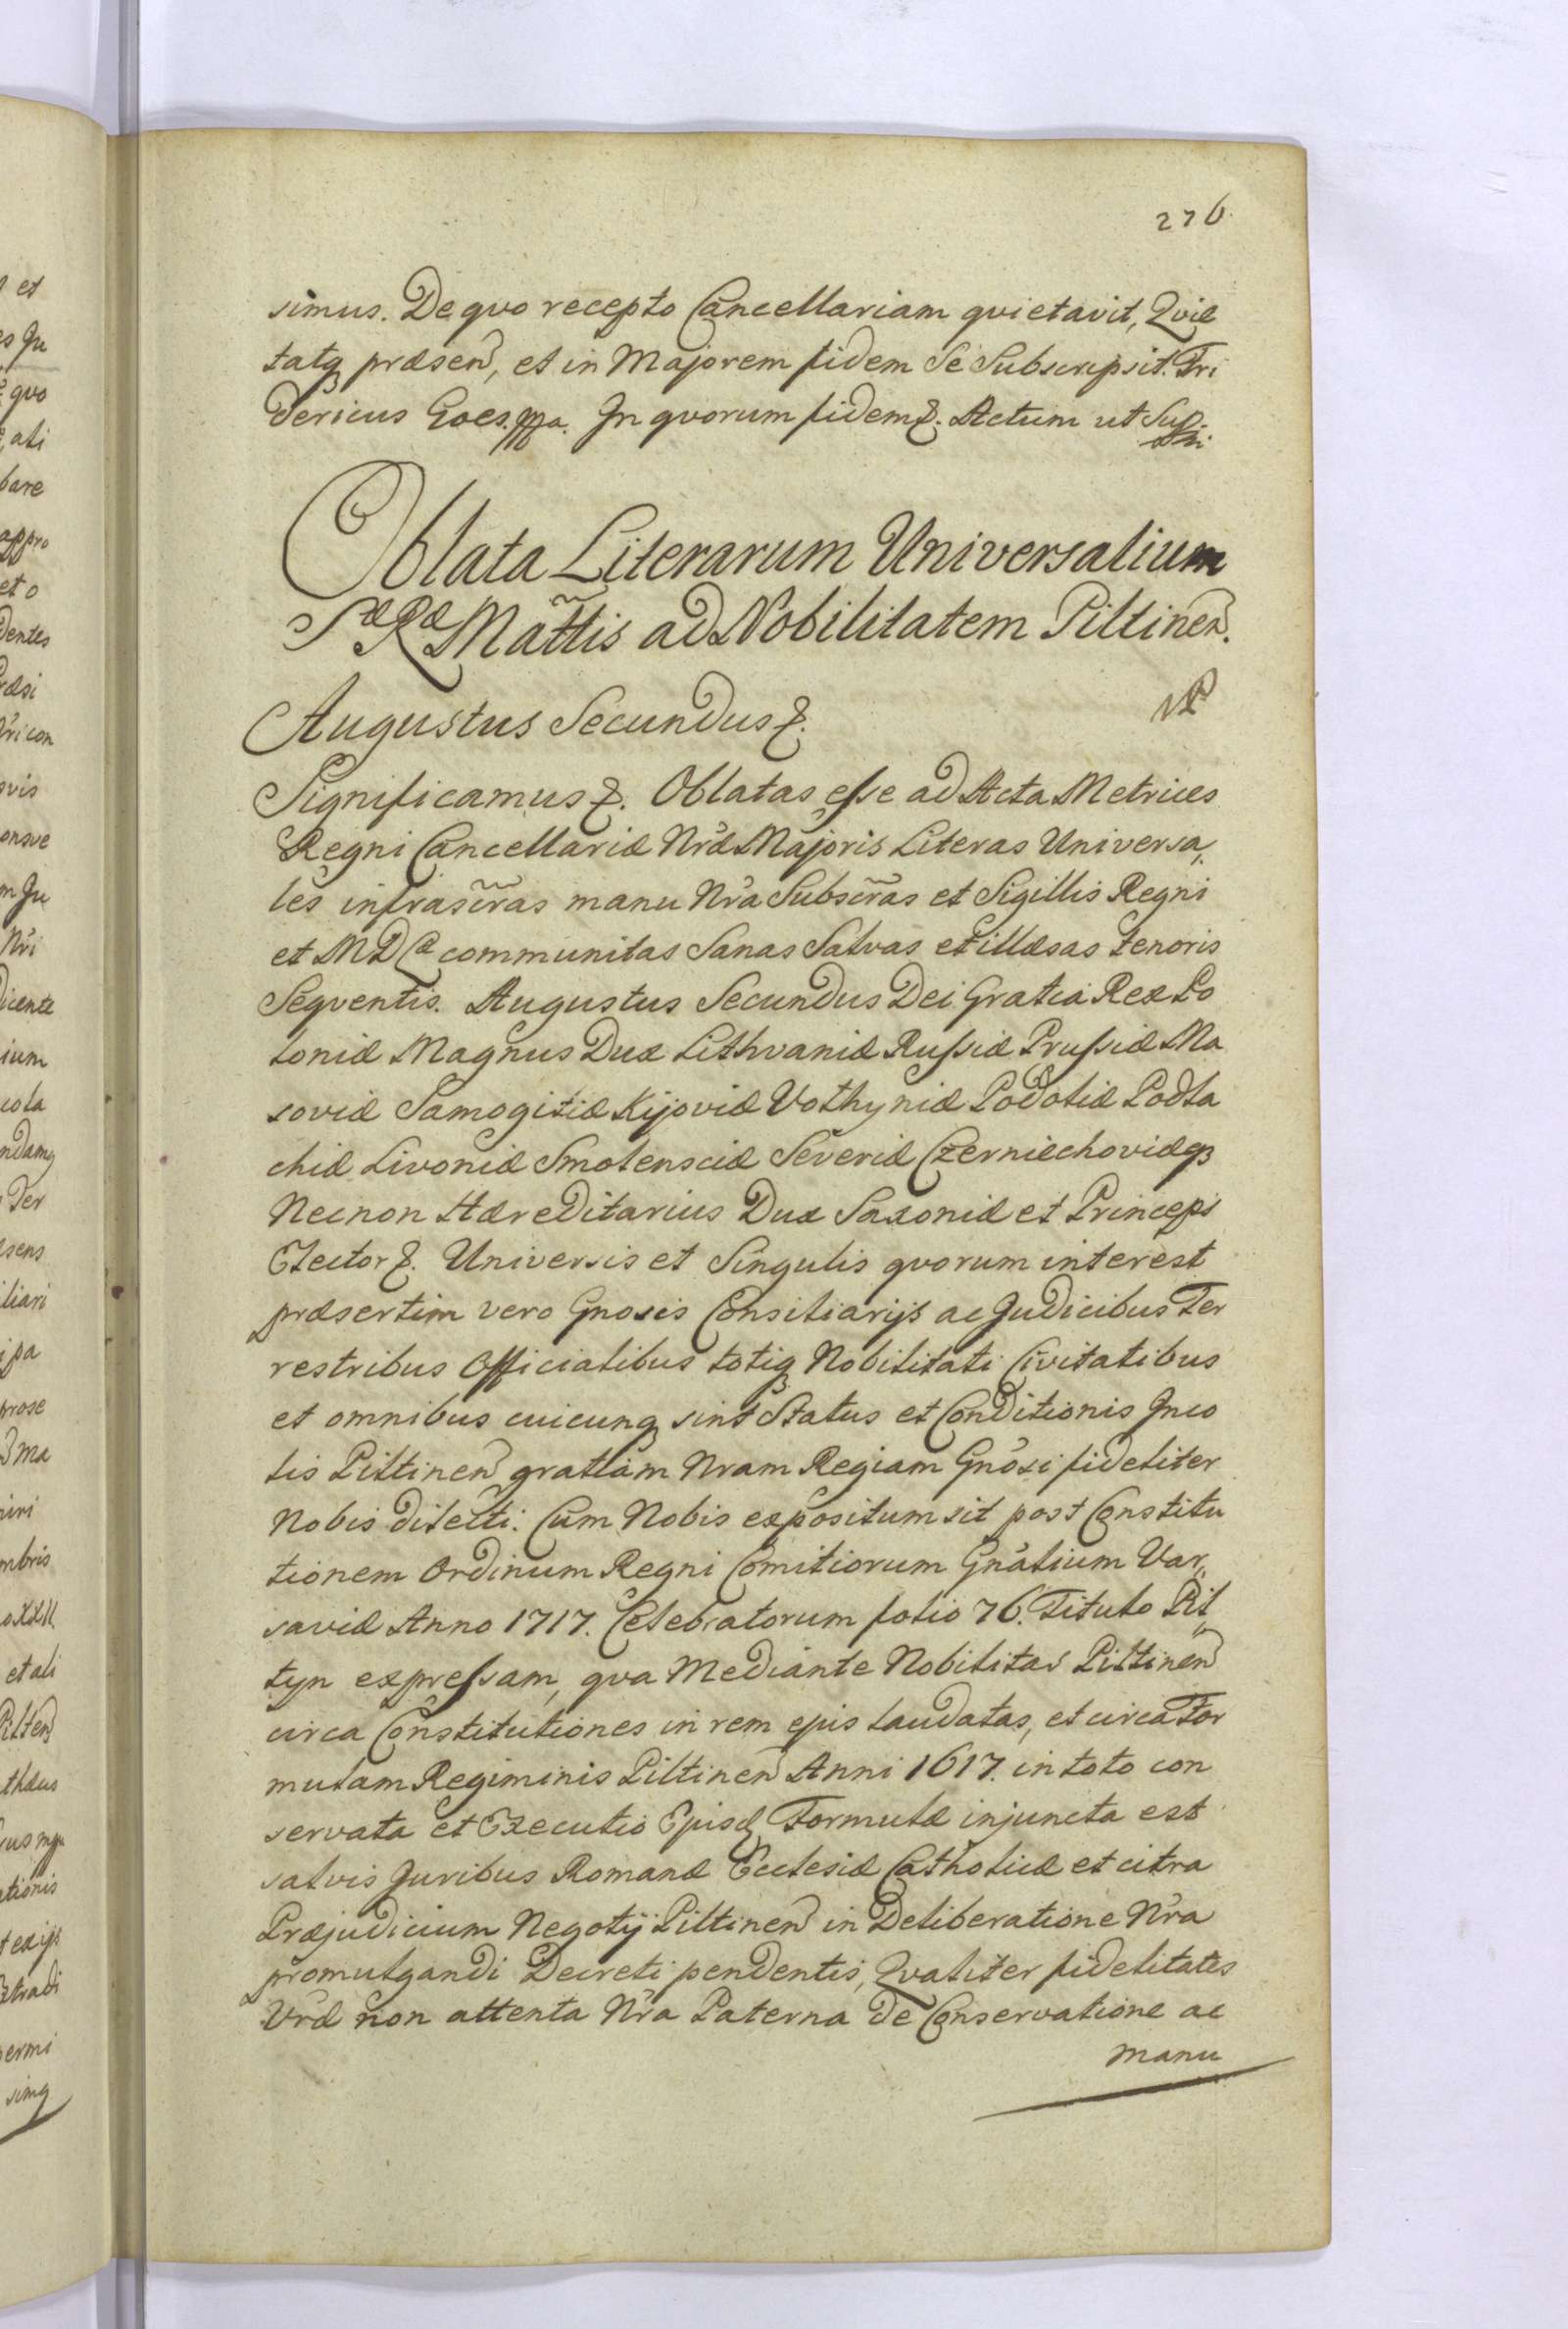 276.
simus. De qvo recepto Cancellariam qvietavit, Qvie
tatq præsen, et in Majorem fidem Se Subscripsit. Fri
dericus Goes. mpa. In qvorum fidem &. Actum ut Sup.
Oblata Literarum Universalium
Sæ Ræ Mattis ad Nobilitatem Piltinen.
Augustus Secundus &.
Significamus &. Oblatas esse ad Acta Metrices
Regni Cancellariæ Nræ Majoris Literas Universa,,
les infrascras manu Nra Subscras et Sigillis Regni
et MD communitas Sanas Salvas et illæsas tenoris
Seqventis. Augustus Secundus Dei Gratia Rex Po
loniæ Magnus Dux Lithvaniæ Russiæ Prussiæ Ma
soviæ Samogitiæ Kijoviæ Volhyniæ Podoliæ Podla
chiæ Livoniæ Smolensciæ Severiæ Czerniechoviæq
Necnon Hæreditarius Dux Saxoniæ et Princeps
Elector &. Universis et Singulis qvorum interest
præsertim vero Gnosis Consiliarijs ac Judicibus Ter
restribus Officialibus totiq Nobilitati Civitatibus
et omnibus cuicunq sint Status et Conditionis Inco
lis Piltinen gratiam Nram Regiam Gnosi fideliter
Nobis dilecti. Cum Nobis expositum sit post Constitu
tionem Ordinum Regni Comitiorum Gnalium Var,,
saviæ Anno 1717. Celebratorum folio 76. Titulo Pil,,
tyn expressam, qva Mediante Nobilitas Piltinen
circa Constitutiones in rem ejus laudatas, et circa For
mulam Regiminis Piltinen Anni 1617. in toto con
servata et Executio Ejusd Formulæ injuncta est
salvis Juribus Romanæ Ecclesiæ Catholicæ et citra
Præjudicium Negotij Piltinen in Deliberatione Nra
promulgandi Decreti pendentis, Qvaliter fidelitates
Vræ non attenta Nra Paterna de Conservatione ac
manu